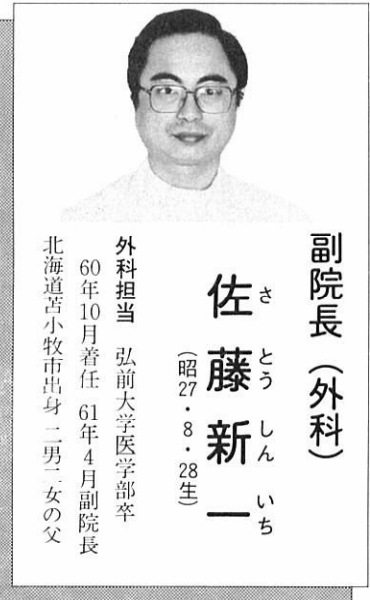 副院長（外科）
さ とう しん いち
佐藤新一
（昭27・8・28生）
外科担当　弘前大学医学部卒
60年10月着任 61年4月副院長
北海道苫小牧市出身 二男二女の父